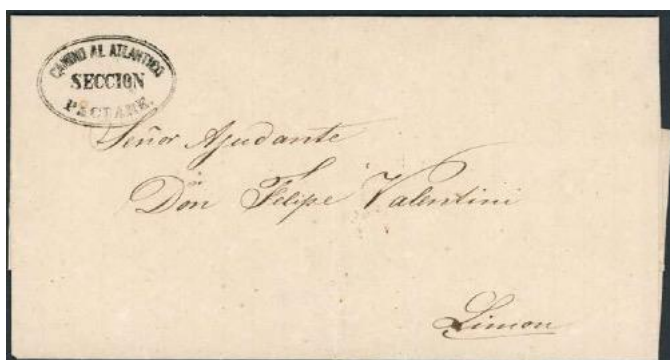 CAMINO AL ATLANTICO
SECCION
PACUARE.
Señor Ayudante
Don Felipe Valentini
Limon